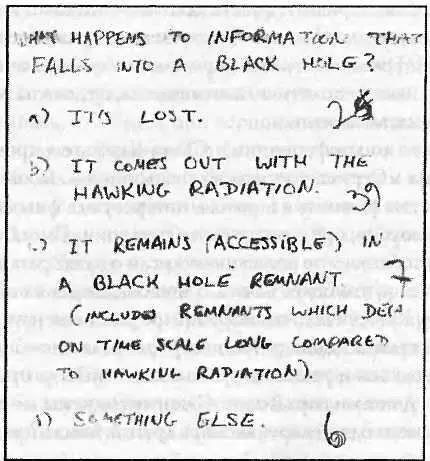 WHAT HAPPENS TO INFORMATION THAT
FALLS INTO A BLACK HOLE?
a) IT'S LOST. 25
b) IT COMES OUT WITH THE
HAWKING RADIATION. 39
c.) IT REMAINS (ACCESSIBLE) IN
A BLACK HOLE REMNANT 7
(INCLUDES REMNANTS WHICH DECA
ON TIME SCALE LONG COMPARED
TO HAWKING RADIATION).
d) SOMETHING ELSE. 6